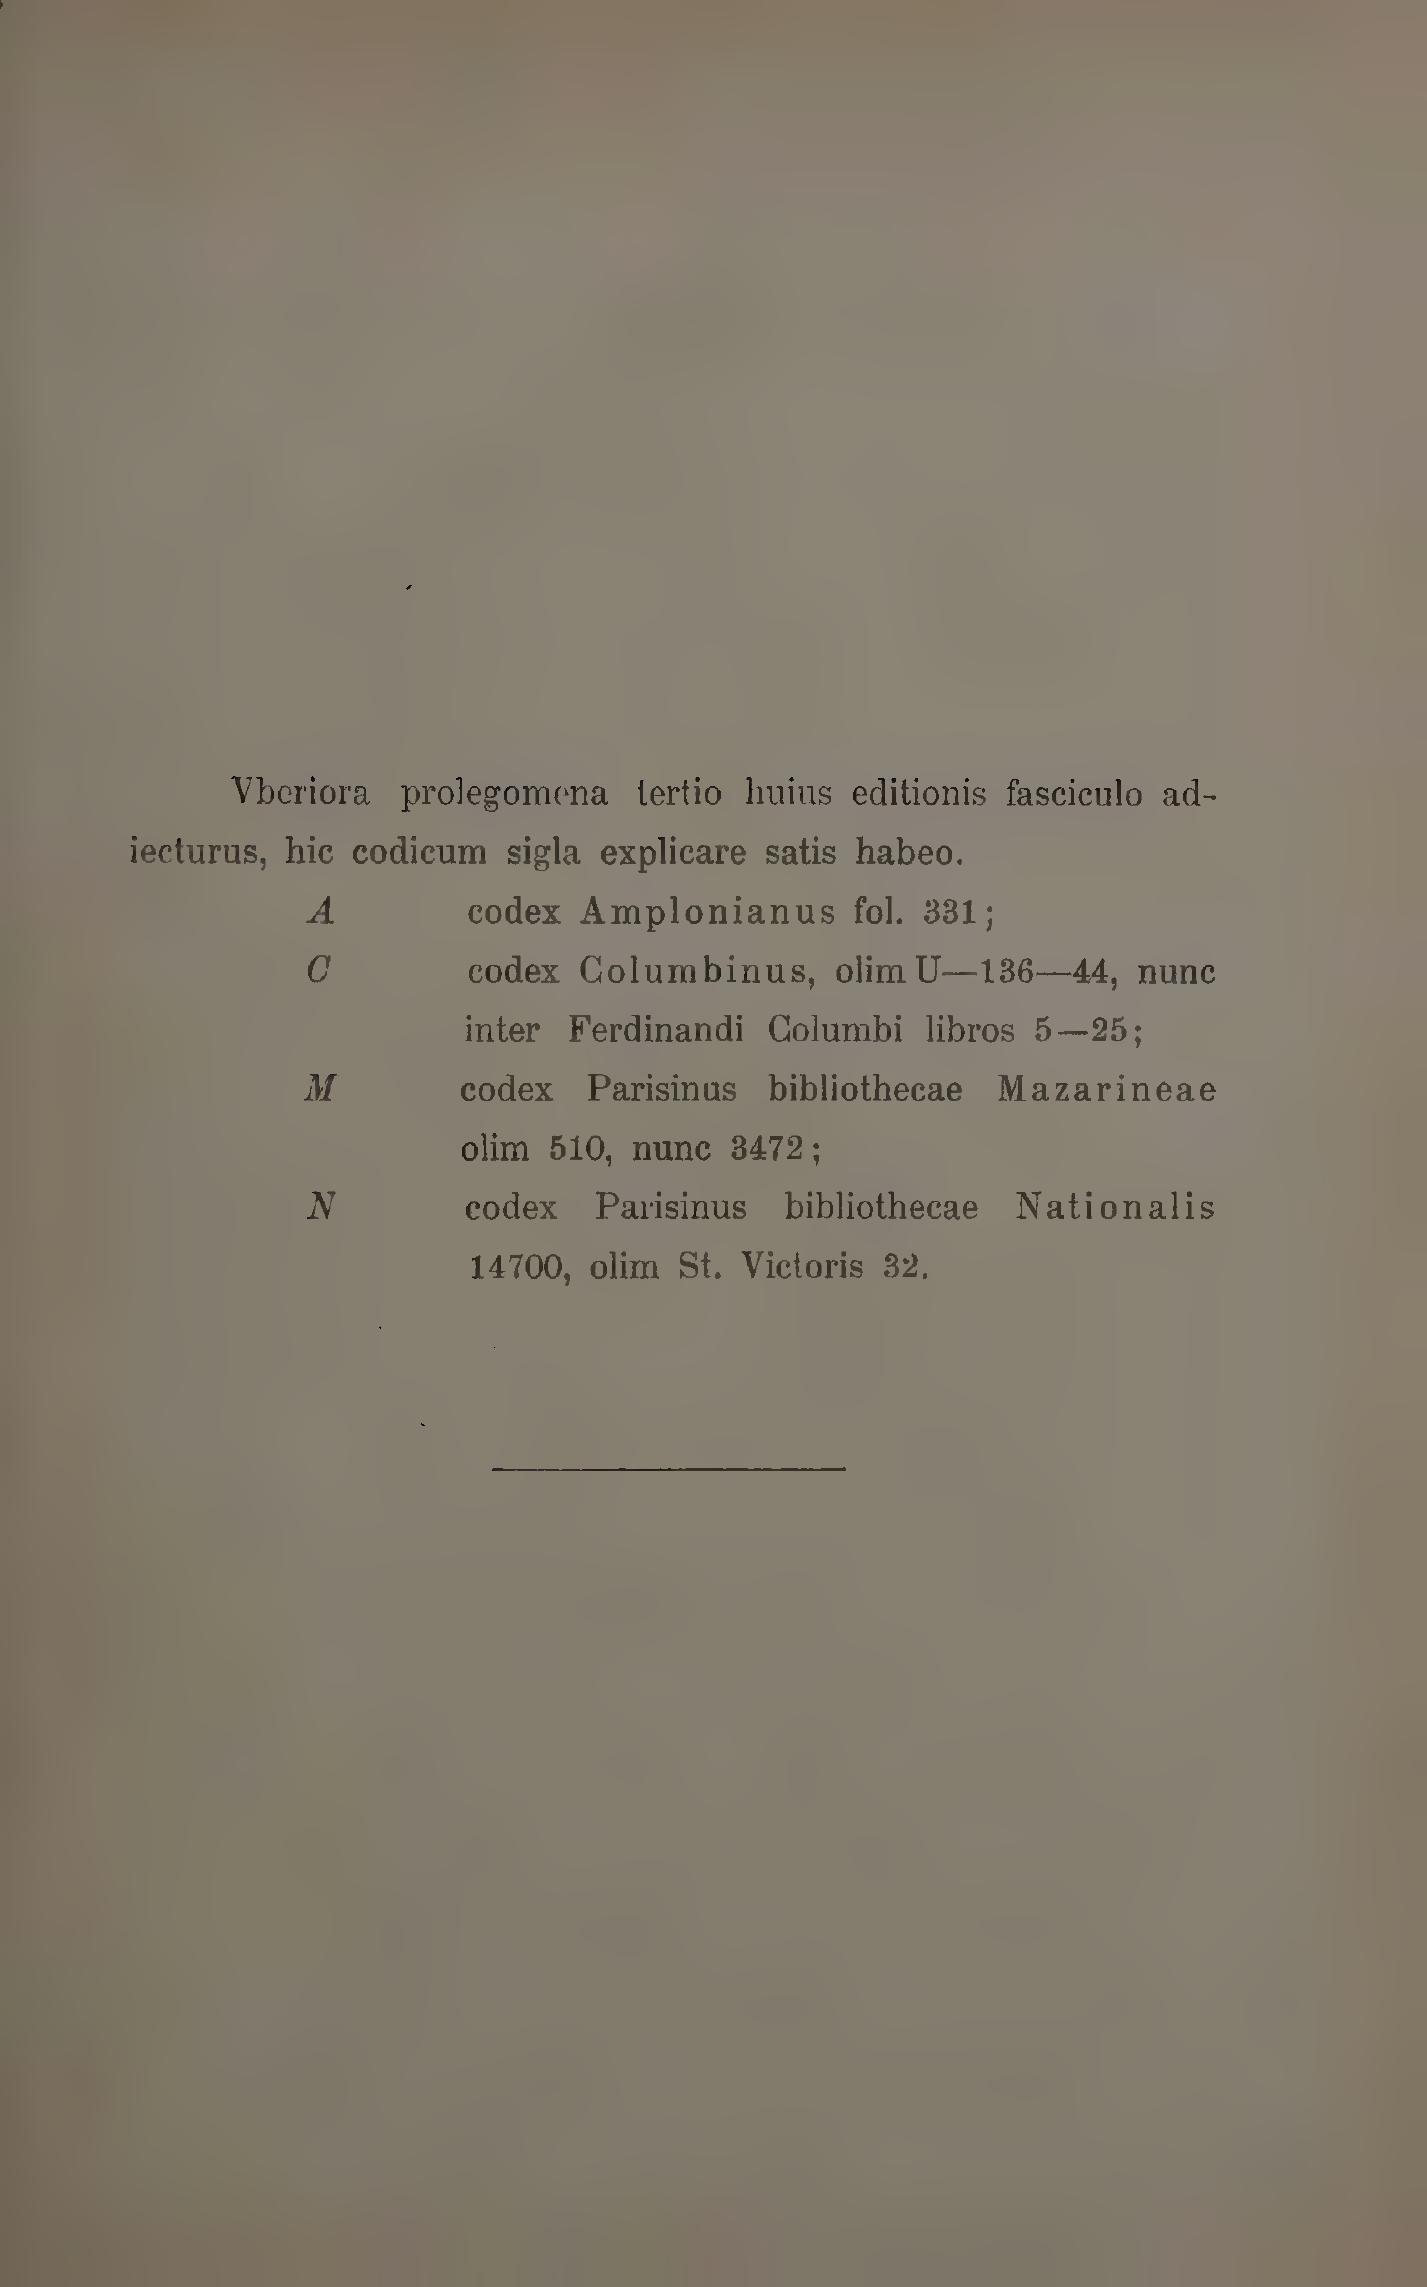 Vberiora prolegomena tertio huius editionis fasciculo ad-
iecturus, hic codicum sigla explicare satis habeo.
A codex Amplonianus fol. 331;
C codex Columbinus, olim U—136—44, nunc
inter Ferdinandi Columbi libros 5—25;
M codex Parisinus bibliothecae Mazarineae
olim 510, nunc 3472;
N codex Parisinus bibliothecae Nationalis
14700, olim St. Victoris 32.